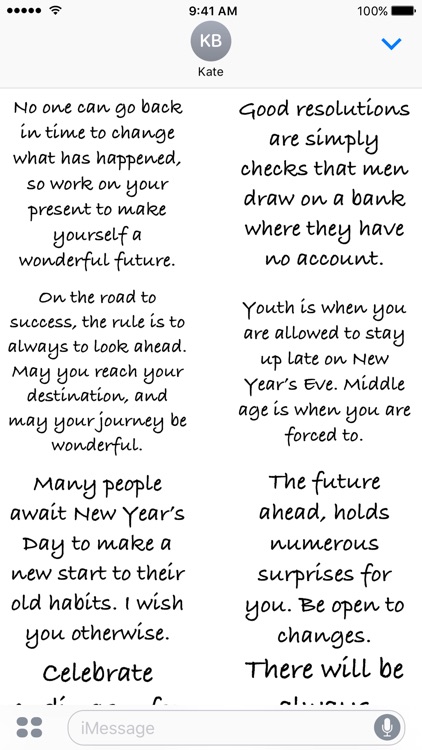 9:41 AM
100%
KB
Kate
No one can go back
in time to change
what has happened,
so work on your
present to make
yourself a
wonderful future.
Good resolutions
are simply
checks that men
draw on a bank
where they have
no account.
On the road to
success, the rule is to
always to look ahead.
May you reach your
destination, and
may your journey be
wonderful.
Youth is when you
are allowed to stay
up late on New
Year's Eve. Middle
age is when you are
forced to.
Many people
await New Year's
Day to make a
new start to their
old habits. I wish
you otherwise.
The future
ahead, holds
numerous
surprises for
you. Be open to
changes.
Celebrate
There will be
always
iMessage